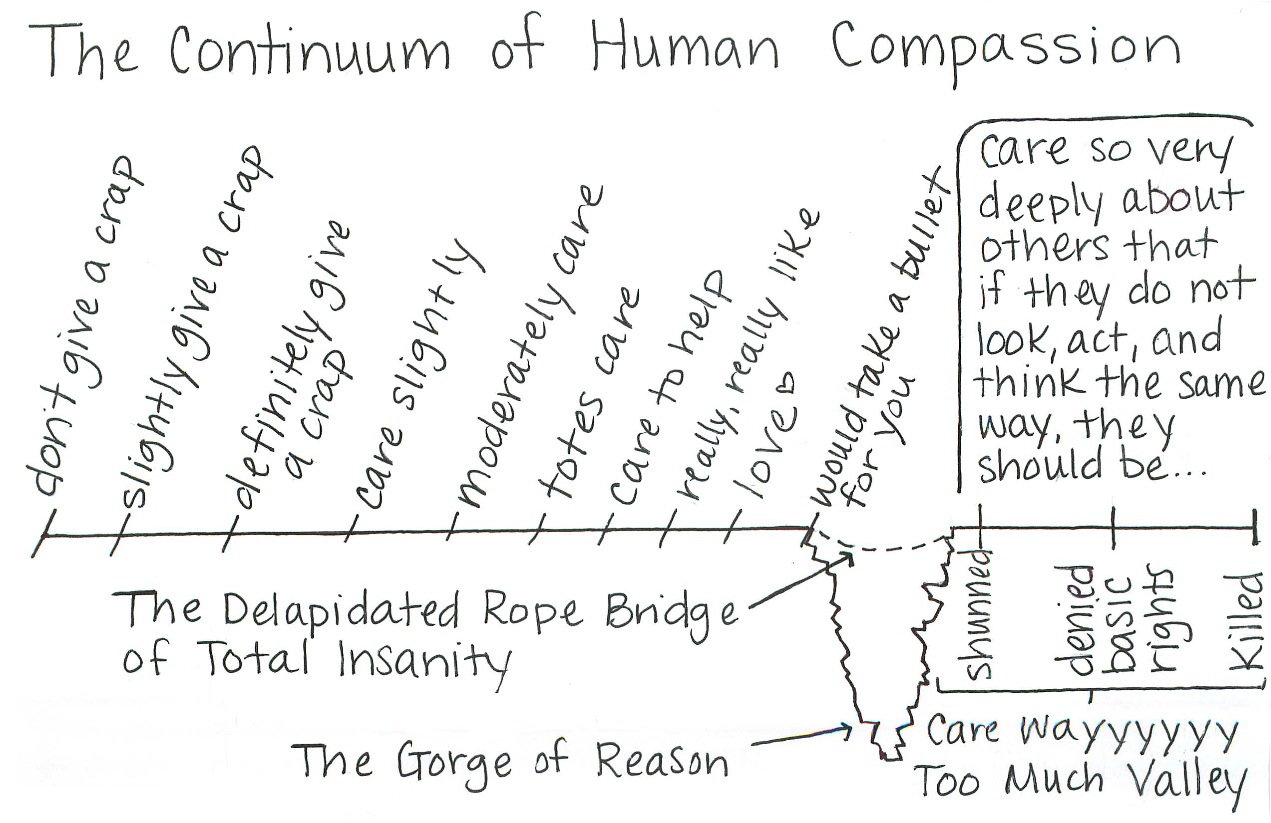 The Continuum of Human Compassion
don't give a crap
slightly give a crap
definitely give
a crap
care slightly
moderately care
totes care
care to help
really, really like
love ♡
would take a bullet
for you
care so very
deeply about
others that
if they do not
look, act, and
think the same
way, they
should be...
shunned
denied
basic
rights
killed
The Delapidated Rope Bridge
of Total Insanity
The Gorge of Reason
Care Wayyyyyy
Too Much Valley